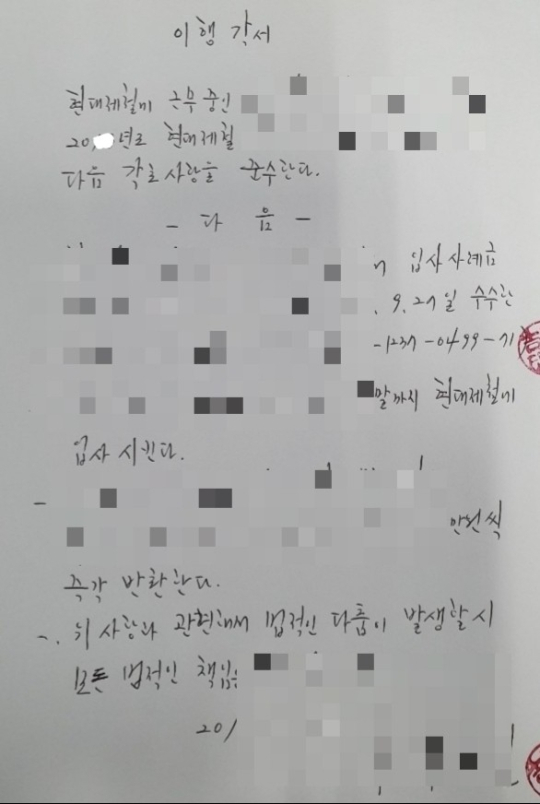 이행각서
현대제철에 근무중인
20 년도 현대제철
다음 각호 사항을 준수한다.
- 다 음 -
입사사례금
. 9. 27일 수수한
-1237-0499-71
말까지 현대제철에
입사 시킨다.
-
만원씩
즉각 반환한다.
-. 위 사항과 관련해서 법적인 다툼이 발생할시
모든 법적인 책임
201